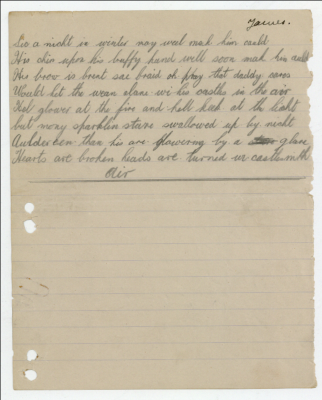 James.
Sic a nicht in winter may weel mak him cauld
His chin upon his buffy hand will soon mak him auld
His brow is brent sae braid oh pray that daddy cares
Would let the wean alane wi his castles in the air
He'll glower at the fire and he'll keek at the licht
but mony sparklin stars swallowed up by nicht
Aulder een than his are glamoured by a glare
Hearts are broken heads are turned wi castles in th
air